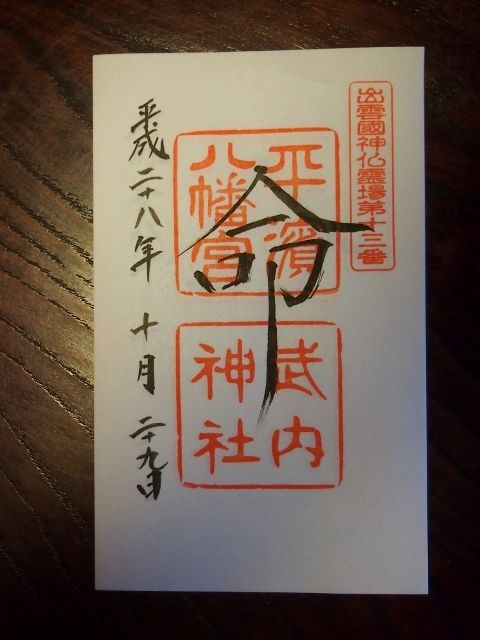 出雲國神仏霊場第十三番
平濱
八幡宮
命
武内
神社
平成二十八年 十月 二十九日